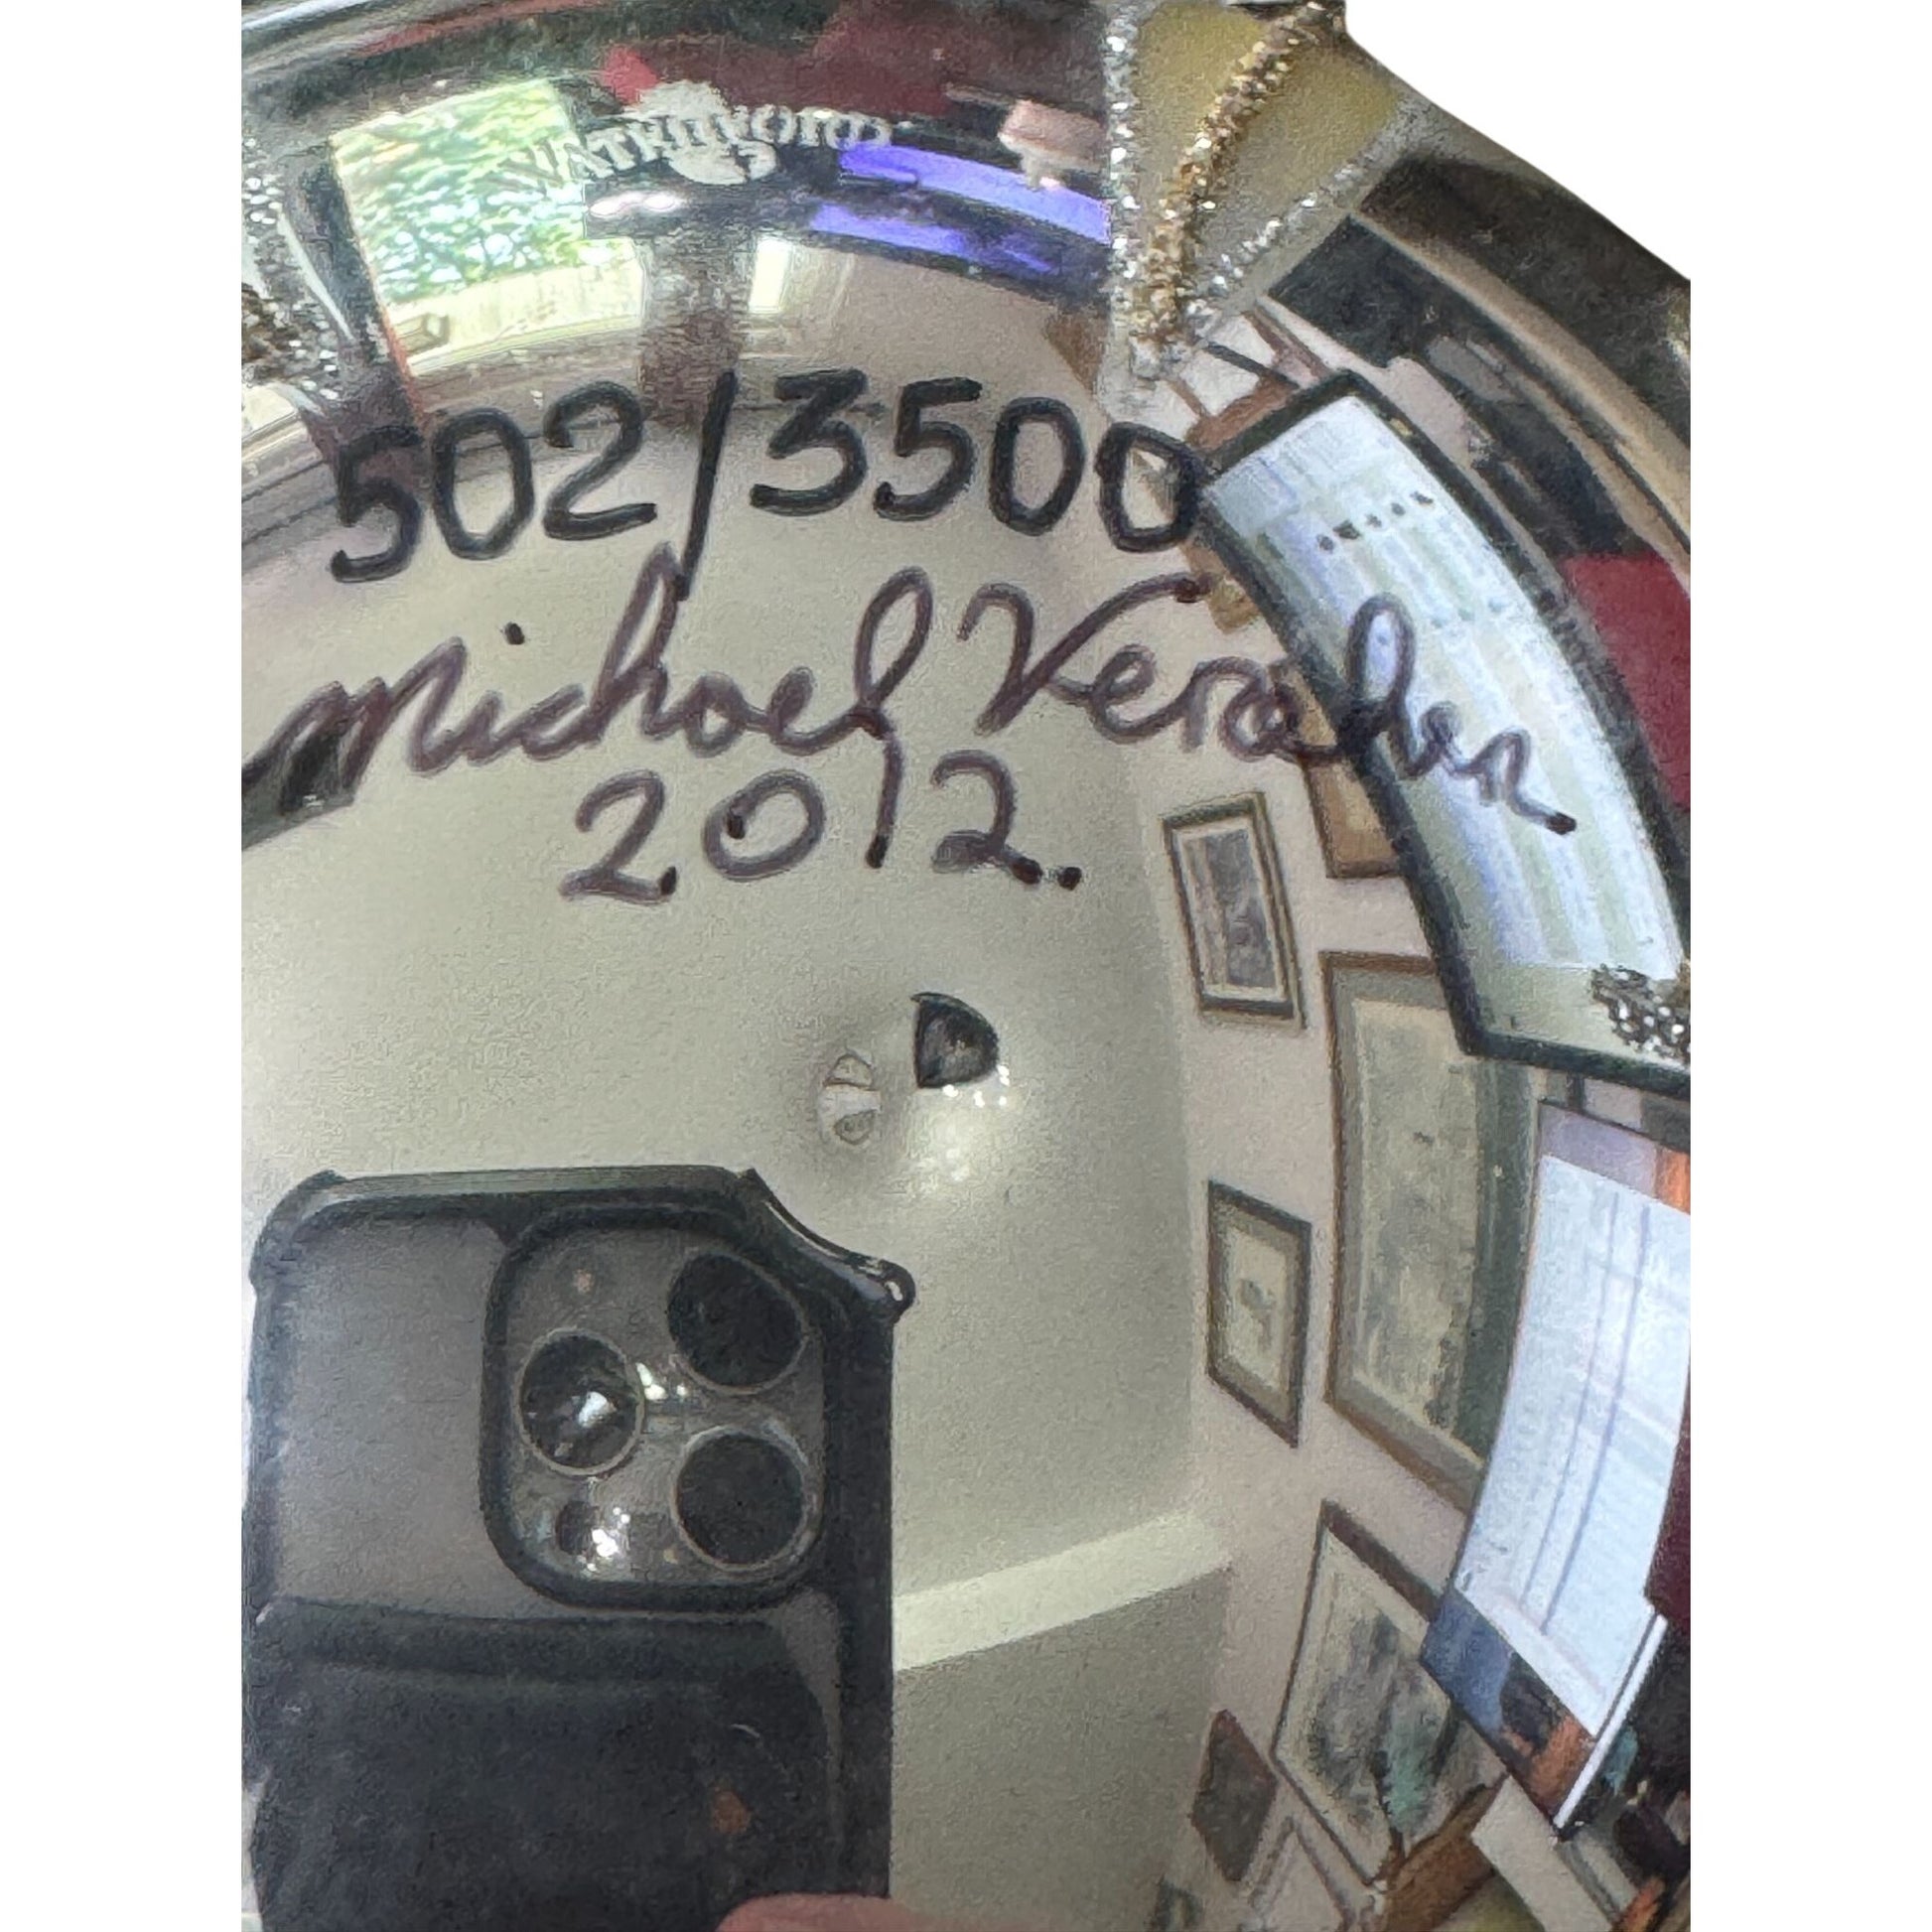 WATERFORD
502/3500
Michael
2012.